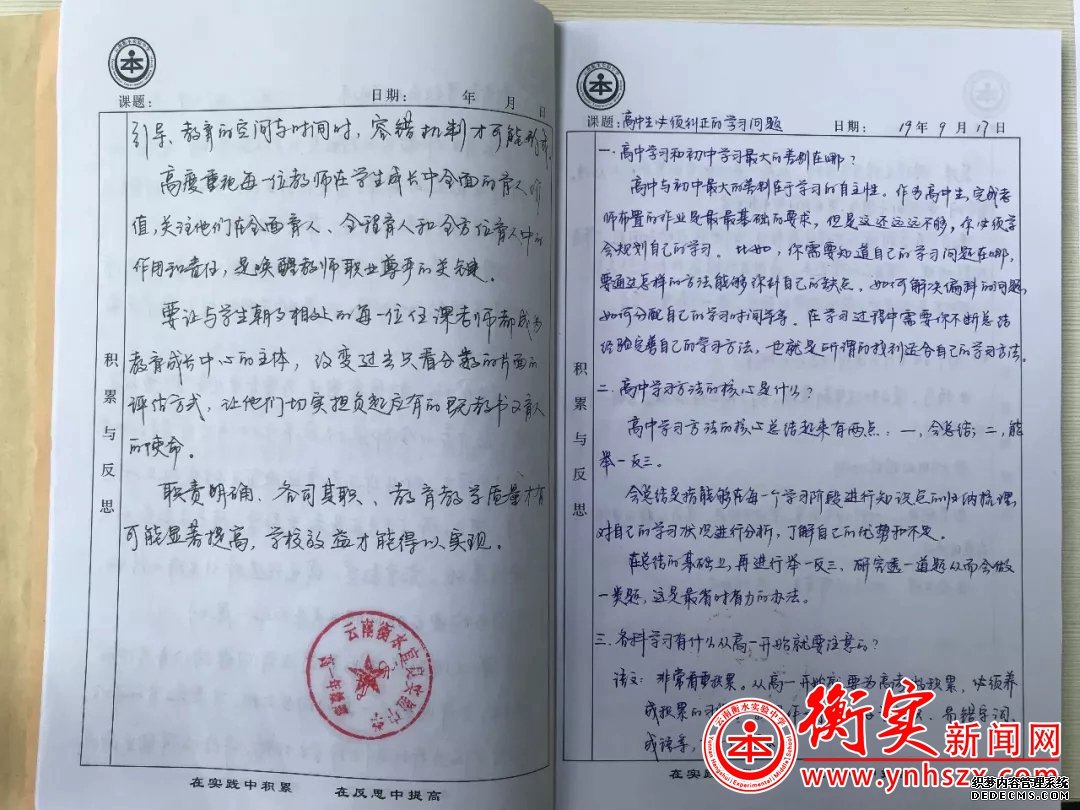 课题： 日期： 年 月 日
引导、教育的空间与时间时，容错机制才可能形成。
高度重视每一位教师在学生成长中全面的育人价
值，关注他们在全面育人、全程育人和全方位育人中的
作用和责任，是唤醒教师职业尊严的关键。
要让与学生朝夕相处的每一位任课老师都成为
教育成长中心的主体，改变过去只看分数的片面的
评估方式，让他们切实担负起应有的既教书又育人
的使命。
职责明确、各司其职、教育教学质量才有
可能显著提高，学校效益才能得以实现。
积累与反思
云南衡水宜良实验中学
在实践中积累 在反思中提高
课题：高中生必须纠正的学习问题 日期：19年9月17日
一.高中学习和初中学习最大的差别在哪？
高中与初中最大的差别在于学习的自主性。作为高中生，完成老
师布置的作业是最最基础的要求，但是这还远远不够，你必须学
会规划自己的学习。比如，你需要知道自己的学习问题在哪，
要通过怎样的方法能够弥补自己的缺点，如何解决偏科的问题，
如何分配自己的学习时间等等。在学习过程中需要你不断总结
经验完善自己的学习方法，也就是所谓的找到适合自己的学习方法。
二.高中学习方法的核心是什么？
高中学习方法的核心总结起来有两点：一，会总结；二，能
举一反三。
会总结是指能够在每一个学习阶段进行知识点的归纳梳理，
对自己的学习状况进行分析，了解自己的优势和不足。
在总结的基础上，再进行举一反三，研究透一道题从而会做
一类题，这是最省时省力的办法。
三.各科学习有什么从高一开始就要注意的？
语文：非常看重积累，从高一开始就要为高考
积累，必须养
成积累的习
易错字词、
成语等，
积累与反思
在实践
云南衡水实验中学
Yunnan Hengshui Experimental Middle School
衡实新闻网
www.ynhszx.com
织梦内容管理系统
DEDECMS.COM